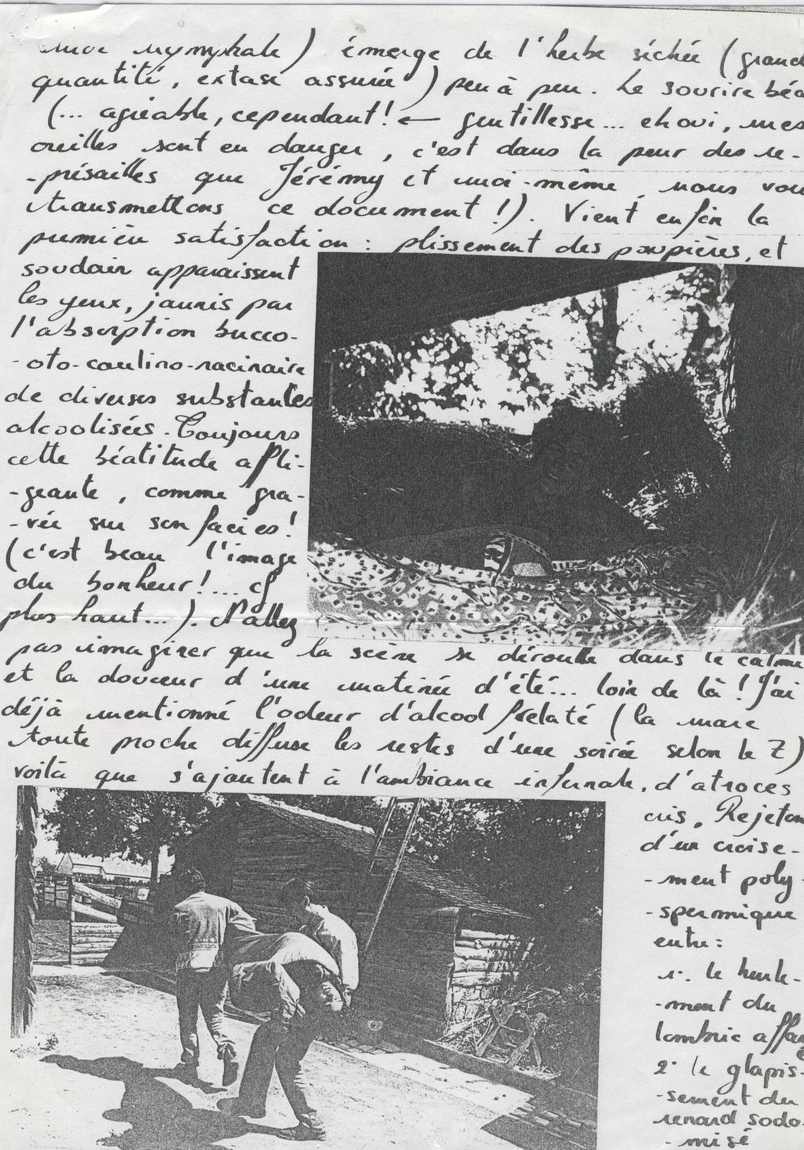 nymphale) émerge de l'herbe séchée (grand
quantité, extase assurée) peu à peu. Le sourire béa
(... agréable, cependant! ← gentillesse... eh oui, mes
oreilles sont en danger, c'est dans la peur des re-
-présailles que Jérémy et moi-même, nous vou
transmettons ce document!). Vient enfin la
première satisfaction : plissement des paupières, et
soudain apparaissent
les yeux, jaunis par
l'absorption bucco-
-oto-caulino-racinaire
de diverses substantes
alcoolisées. Toujours
cette béatitude affli-
-geante, comme gra-
-vée sur son facies!
(c'est beau l'image
du bonheur!.... cf
plus haut...). N'allez
pas imaginer que la scène se déroule dans le calme
et la douceur d'une matinée d'été... loin de là! J'ai
déjà mentionné l'odeur d'alcool frelaté (la mare
toute proche diffuse les restes d'une soirée selon le Z)
voilà que s'ajoutent à l'ambiance infernale, d'atroces
cris, Rejeton
d'un croise-
-ment poly-
-spermique
entre:
1. le hurle-
-ment du
lombric affa
2. le glapis-
-sement du
renard sodo-
-misé